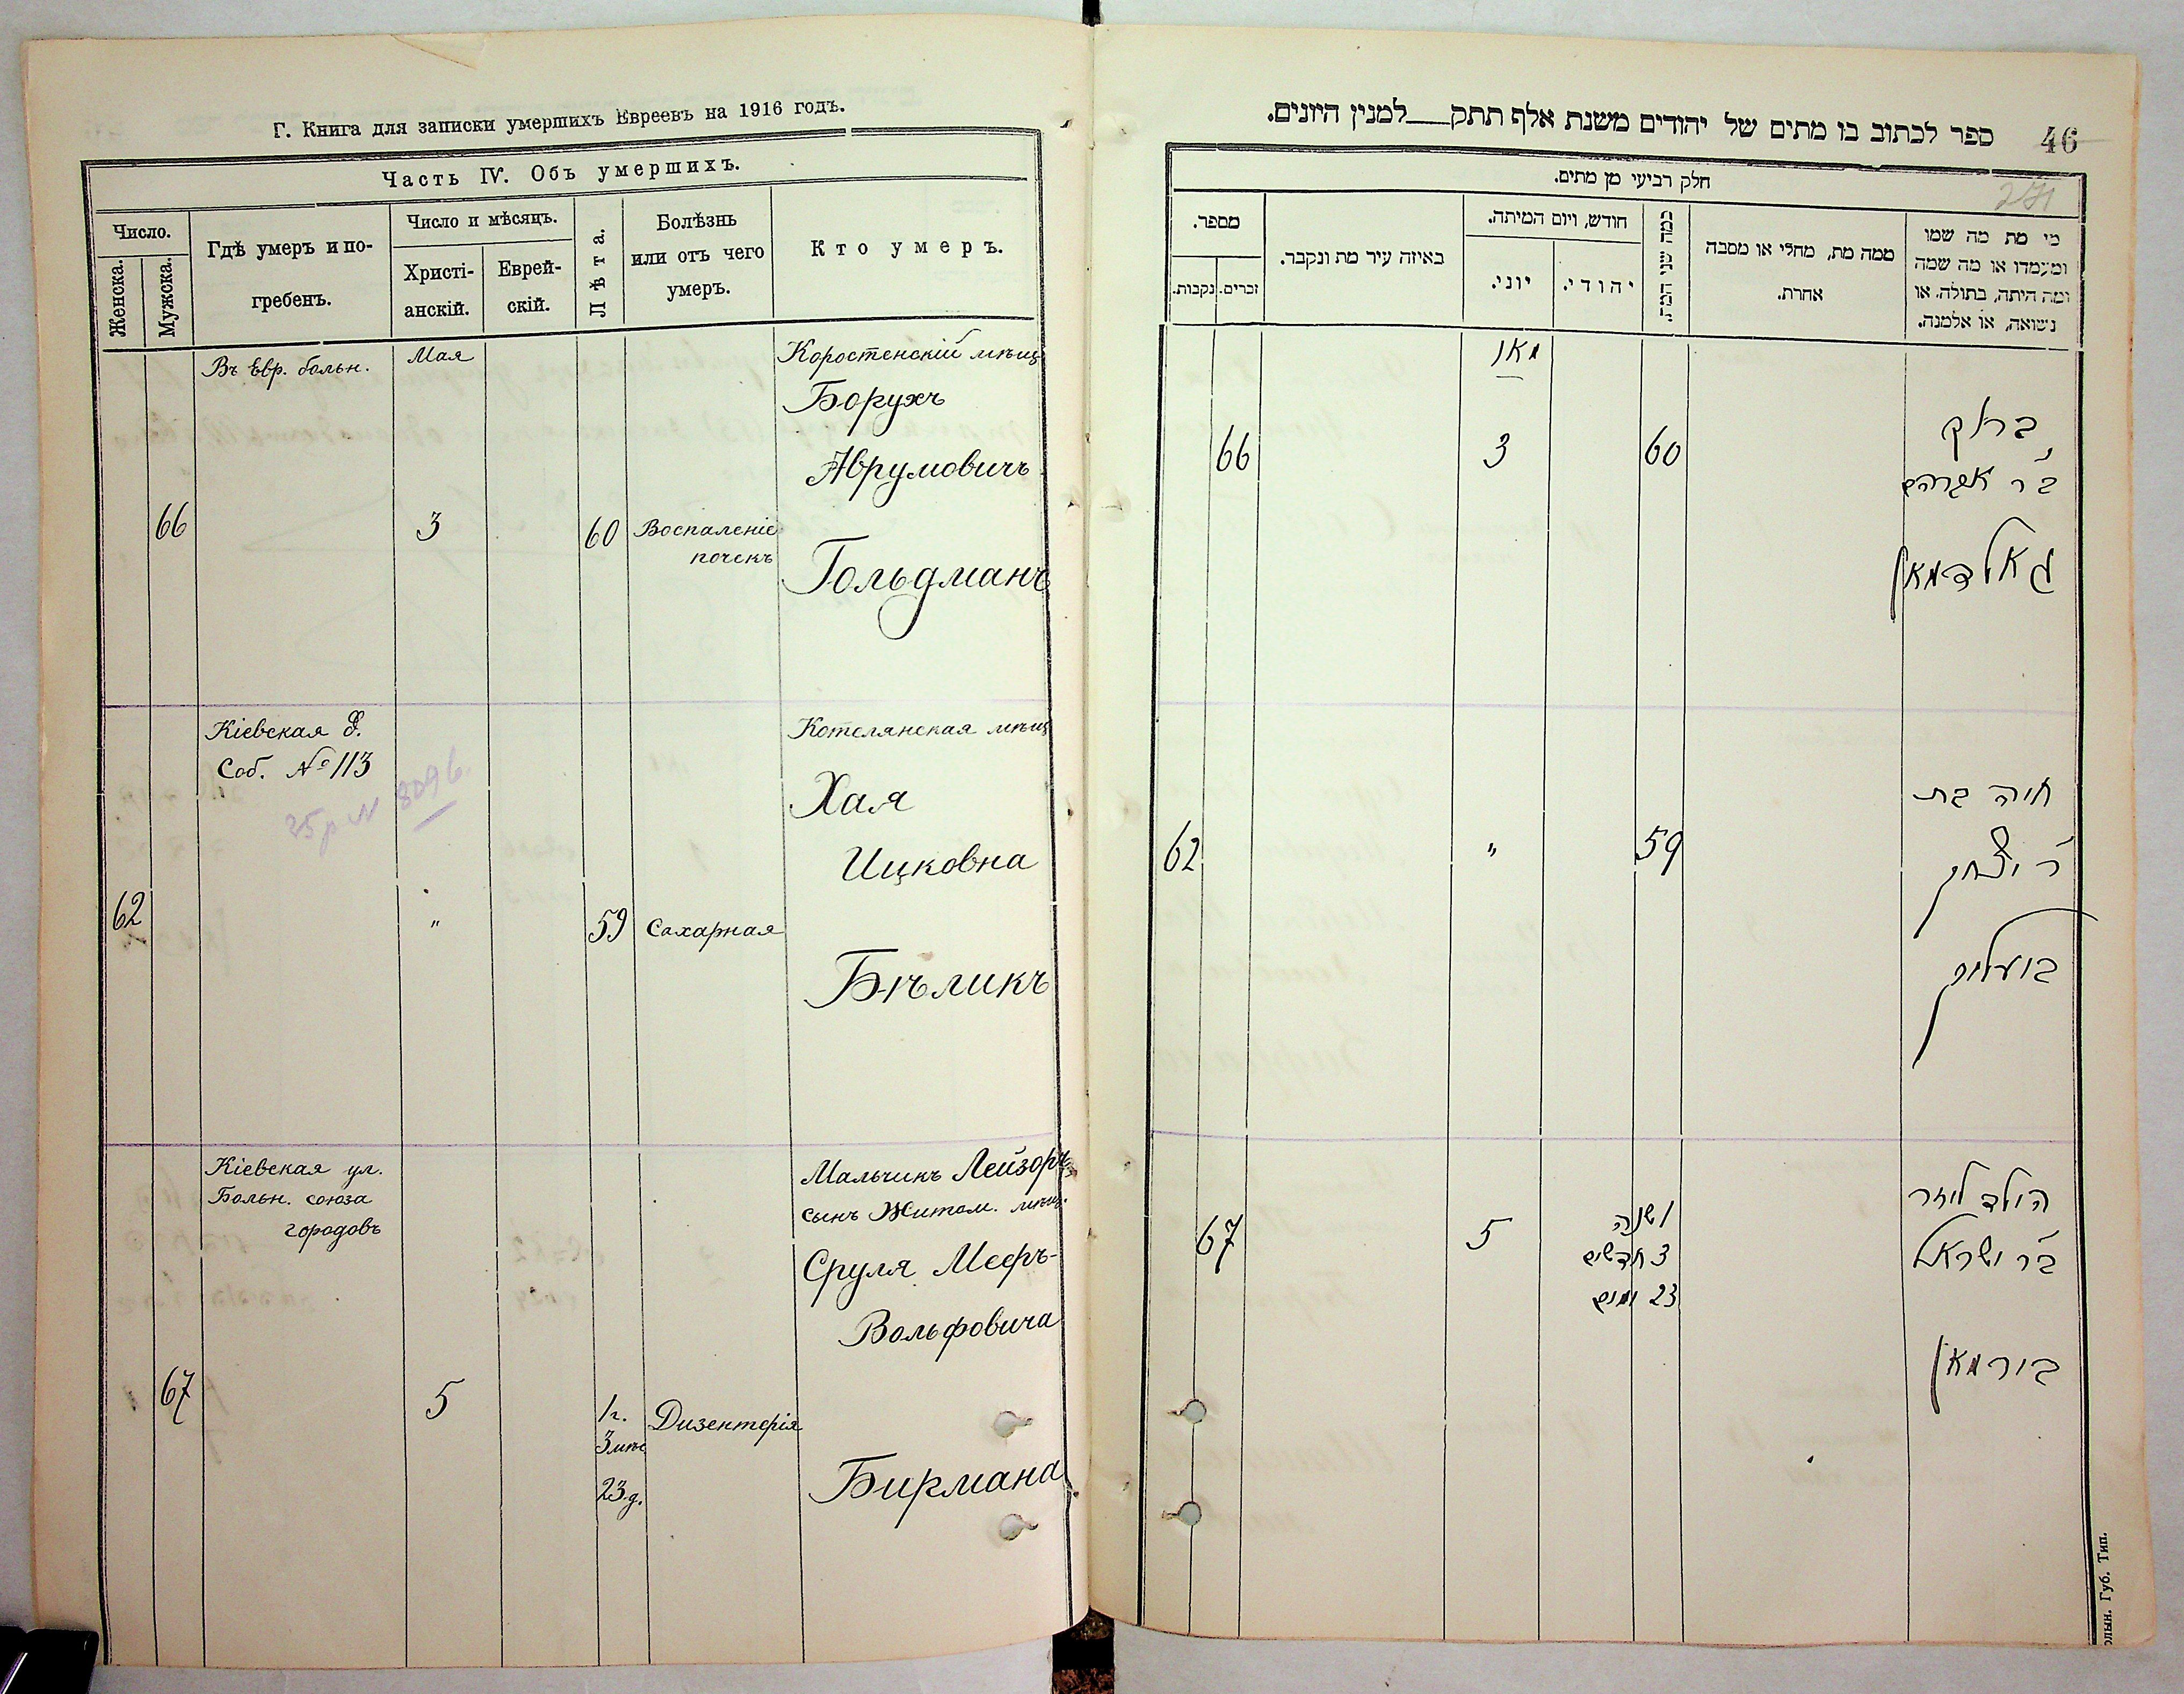 Г. Книга для записки умершихъ Евреевъ на 1916 годъ.
Часть IV. Объ умершихъ.
Число.
Женска.
Мужска.
Гдѣ умеръ и по-
гребенъ.
Число и мѣсяцъ.
Христі-
анскій.
Еврей-
скій.
Лѣта.
Болѣзнь
или отъ чего
умеръ.
Кто умеръ.
Въ Евр. больн.
Мая
66
3
60
Воспаленіе
почекъ
Коростенскій мѣщ
Борухъ
Аврумовичъ
Гольдманъ
Кіевская
Соб. № 113
62
"
59
Сахарная
Котелянская мѣщ
Хая
Ицковна
Бѣликъ
Кіевская ул.
Больн. союза
городовъ
67
5
1 г.
3 мѣс
23 д.
Дизентерія
Мальчикъ Лейзоръ
сынъ Житом. мѣщ.
Сруля Мееръ-
Вольфовича
Бирмана
46
ספר לכתוב בו מתים של יהודים משנת אלף תתק למנין היונים.
חלק רביעי מן מתים.
מי מת מה שמו
ומעמדו או מה שמה
ומה היתה, בתולה, או
נשואה, או אלמנה.
ממה מת, מחלי או מסבה
אחרת.
חודש, ויום המיתה.
יהודי.
יוני.
באיזה עיר מת ונקבר.
מספר.
זכרים.
נקבות.
מאי
ברוך
ב"ר אברהם
גאלדמאן
60
3
66
חיה בת
ר' יצחק
ביעליק
59
"
62
הילד ליזר
ב"ר ישראל
בירמאן
1 שנה
3 חדשים
23 ימים
5
67
Губ. Тип.